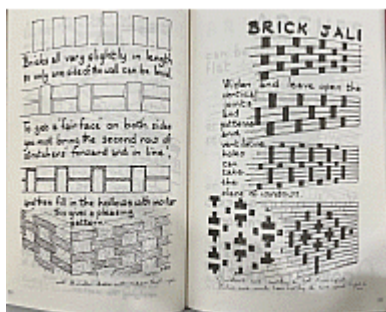 Bricks all vary slightly in length
so only one side of the wall can be level.
To get a 'fair face' on both sides
you must bring the second row of
'stretchers' forward and in line,
and then fill in the hollows with mortar
this gives a pleasing
pattern.
BRICK JALI
Widen and leave open the
vertical
joints
and
patterned
and
ventilating
holes
can
take
the
place of windows.